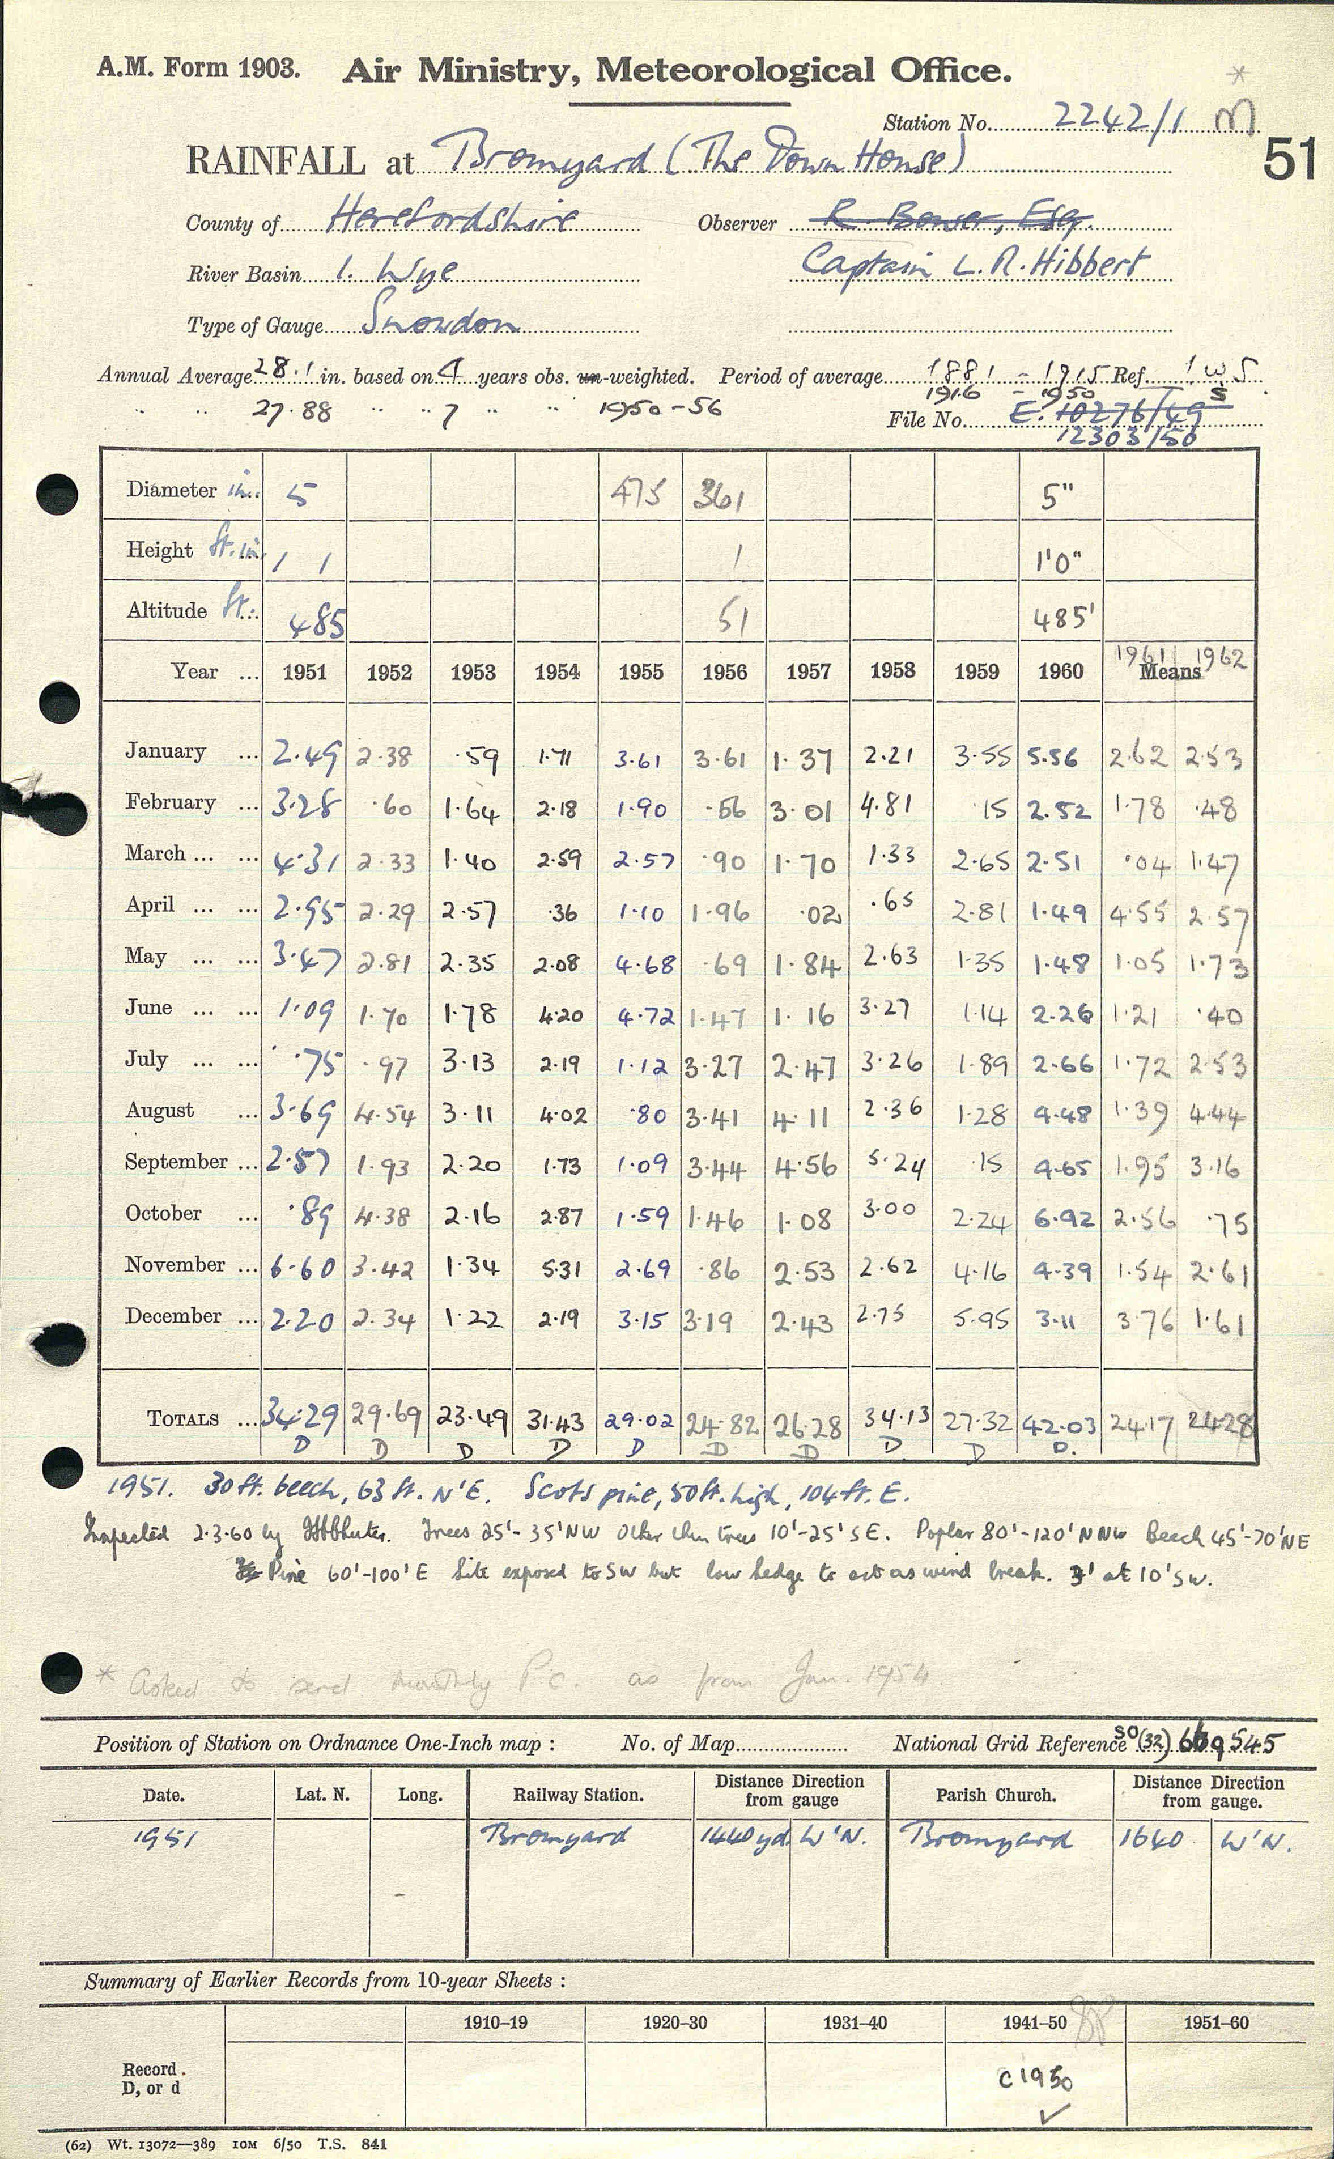 A.M. Form 1903. Air Ministry, Meteorological Office. *
Station No. 2242/1 M
51
RAINFALL at Bromyard (The Down House)
County of Herefordshire Observer R. Bower, Esq.
River Basin 1. Wye Captain L.R. Hibbert
Type of Gauge Snowdon
Annual Average 28.1 in. based on 4 years obs. un-weighted. Period of average 1881 - 1915 Ref. 1 W S
" " 27.88 " " 7 " " 1950-56 1916 - 1950
File No. E. 10276/49
12303/50
Diameter in. 5 475 361 5"
Height ft. in. 1 1 1 1'0"
Altitude ft. 485 51 485'
Year ... 1951 1952 1953 1954 1955 1956 1957 1958 1959 1960 Means 1961 1962
January ... 2.49 2.38 .59 1.71 3.61 3.61 1.37 2.21 3.55 5.56 2.62 2.53
February ... 3.28 .60 1.64 2.18 1.90 .56 3.01 4.81 .15 2.52 1.78 .48
March ... ... 4.31 2.33 1.40 2.59 2.57 .90 1.70 1.33 2.65 2.51 .04 1.47
April ... ... 2.95 2.29 2.57 .36 1.10 1.96 .02 .65 2.81 1.49 4.55 2.57
May ... ... 3.47 2.81 2.35 2.08 4.68 .69 1.84 2.63 1.35 1.48 1.05 1.73
June ... ... 1.09 1.70 1.78 4.20 4.72 1.47 1.16 3.27 1.14 2.26 1.21 .40
July ... ... .75 .97 3.13 2.19 1.12 3.27 2.47 3.26 1.89 2.66 1.72 2.53
August ... 3.69 4.54 3.11 4.02 .80 3.41 4.11 2.36 1.28 4.48 1.39 4.44
September ... 2.57 1.93 2.20 1.73 1.09 3.44 4.56 5.24 .15 4.65 1.95 3.16
October ... .89 4.38 2.16 2.87 1.59 1.46 1.08 3.00 2.24 6.92 2.56 .75
November ... 6.60 3.42 1.34 5.31 2.69 .86 2.53 2.62 4.16 4.39 1.54 2.61
December ... 2.20 2.34 1.22 2.19 3.15 3.19 2.43 2.75 5.95 3.11 3.76 1.61
TOTALS ... 34.29 29.69 23.49 31.43 29.02 24.82 26.28 34.13 27.32 42.03 24.17 24.28
D D D D D D D D D D.
1951. 30 ft. beech, 63 ft. N'E. Scots pine, 50 ft. high, 104 ft. E.
Inspected 2.3.60 by Trees 25'-35'NW Other thin trees 10'-25'SE. Poplar 80'-120'NNW Beech 45'-70'NE
Pine 60'-100'E Site exposed to SW but low hedge to act as wind break. 3' at 10'SW.
* Asked to send monthly P.C. as from Jan. 1954
Position of Station on Ordnance One-Inch map : No. of Map National Grid Reference SO (32) 669545
Date. Lat. N. Long. Railway Station. Distance Direction from gauge Parish Church. Distance Direction from gauge.
1951 Bromyard 1440 yd. W'N. Bromyard 1640 W'N.
Summary of Earlier Records from 10-year Sheets :
1910–19 1920–30 1931–40 1941–50 1951–60
Record. D, or d c 1950
(62) Wt. 13072—389 10M 6/50 T.S. 841